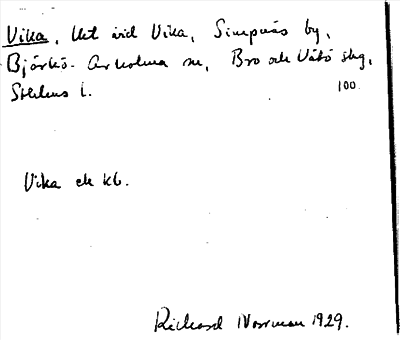 Vika, Utt vid Vika, Simpnäs by,
Björkö-Arholma sn, Bro och Vätö skg,
Sthlms l. 100.
Vika ek kb.
Richard Norrman 1929.